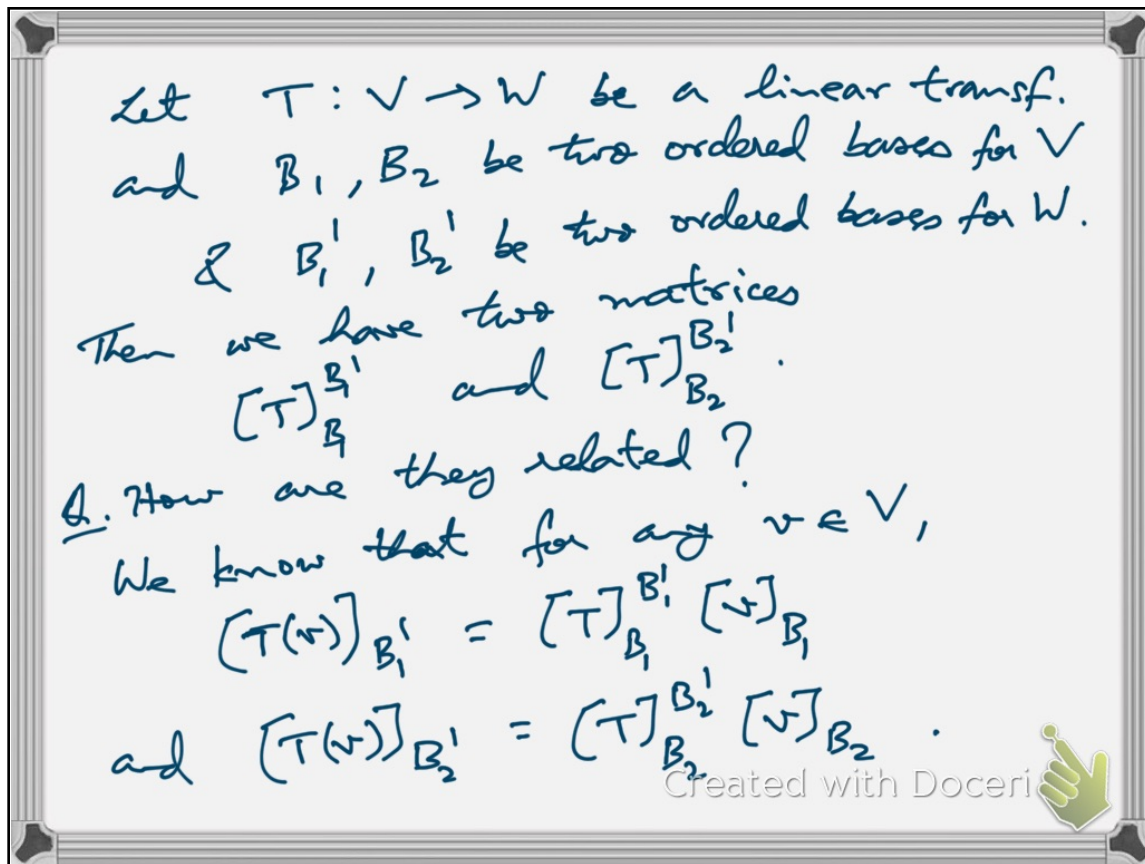 Let T : V → W be a linear transf.
and B₁, B₂ be two ordered bases for V
& B₁', B₂' be two ordered bases for W.
Then we have two matrices
[T]_{B₁}^{B₁'} and [T]_{B₂}^{B₂'}.
Q. How are they related?
We know that for any v ∈ V,
[T(v)]_{B₁'} = [T]_{B₁}^{B₁'} [v]_{B₁}
and [T(v)]_{B₂'} = [T]_{B₂}^{B₂'} [v]_{B₂}.
Created with Doceri